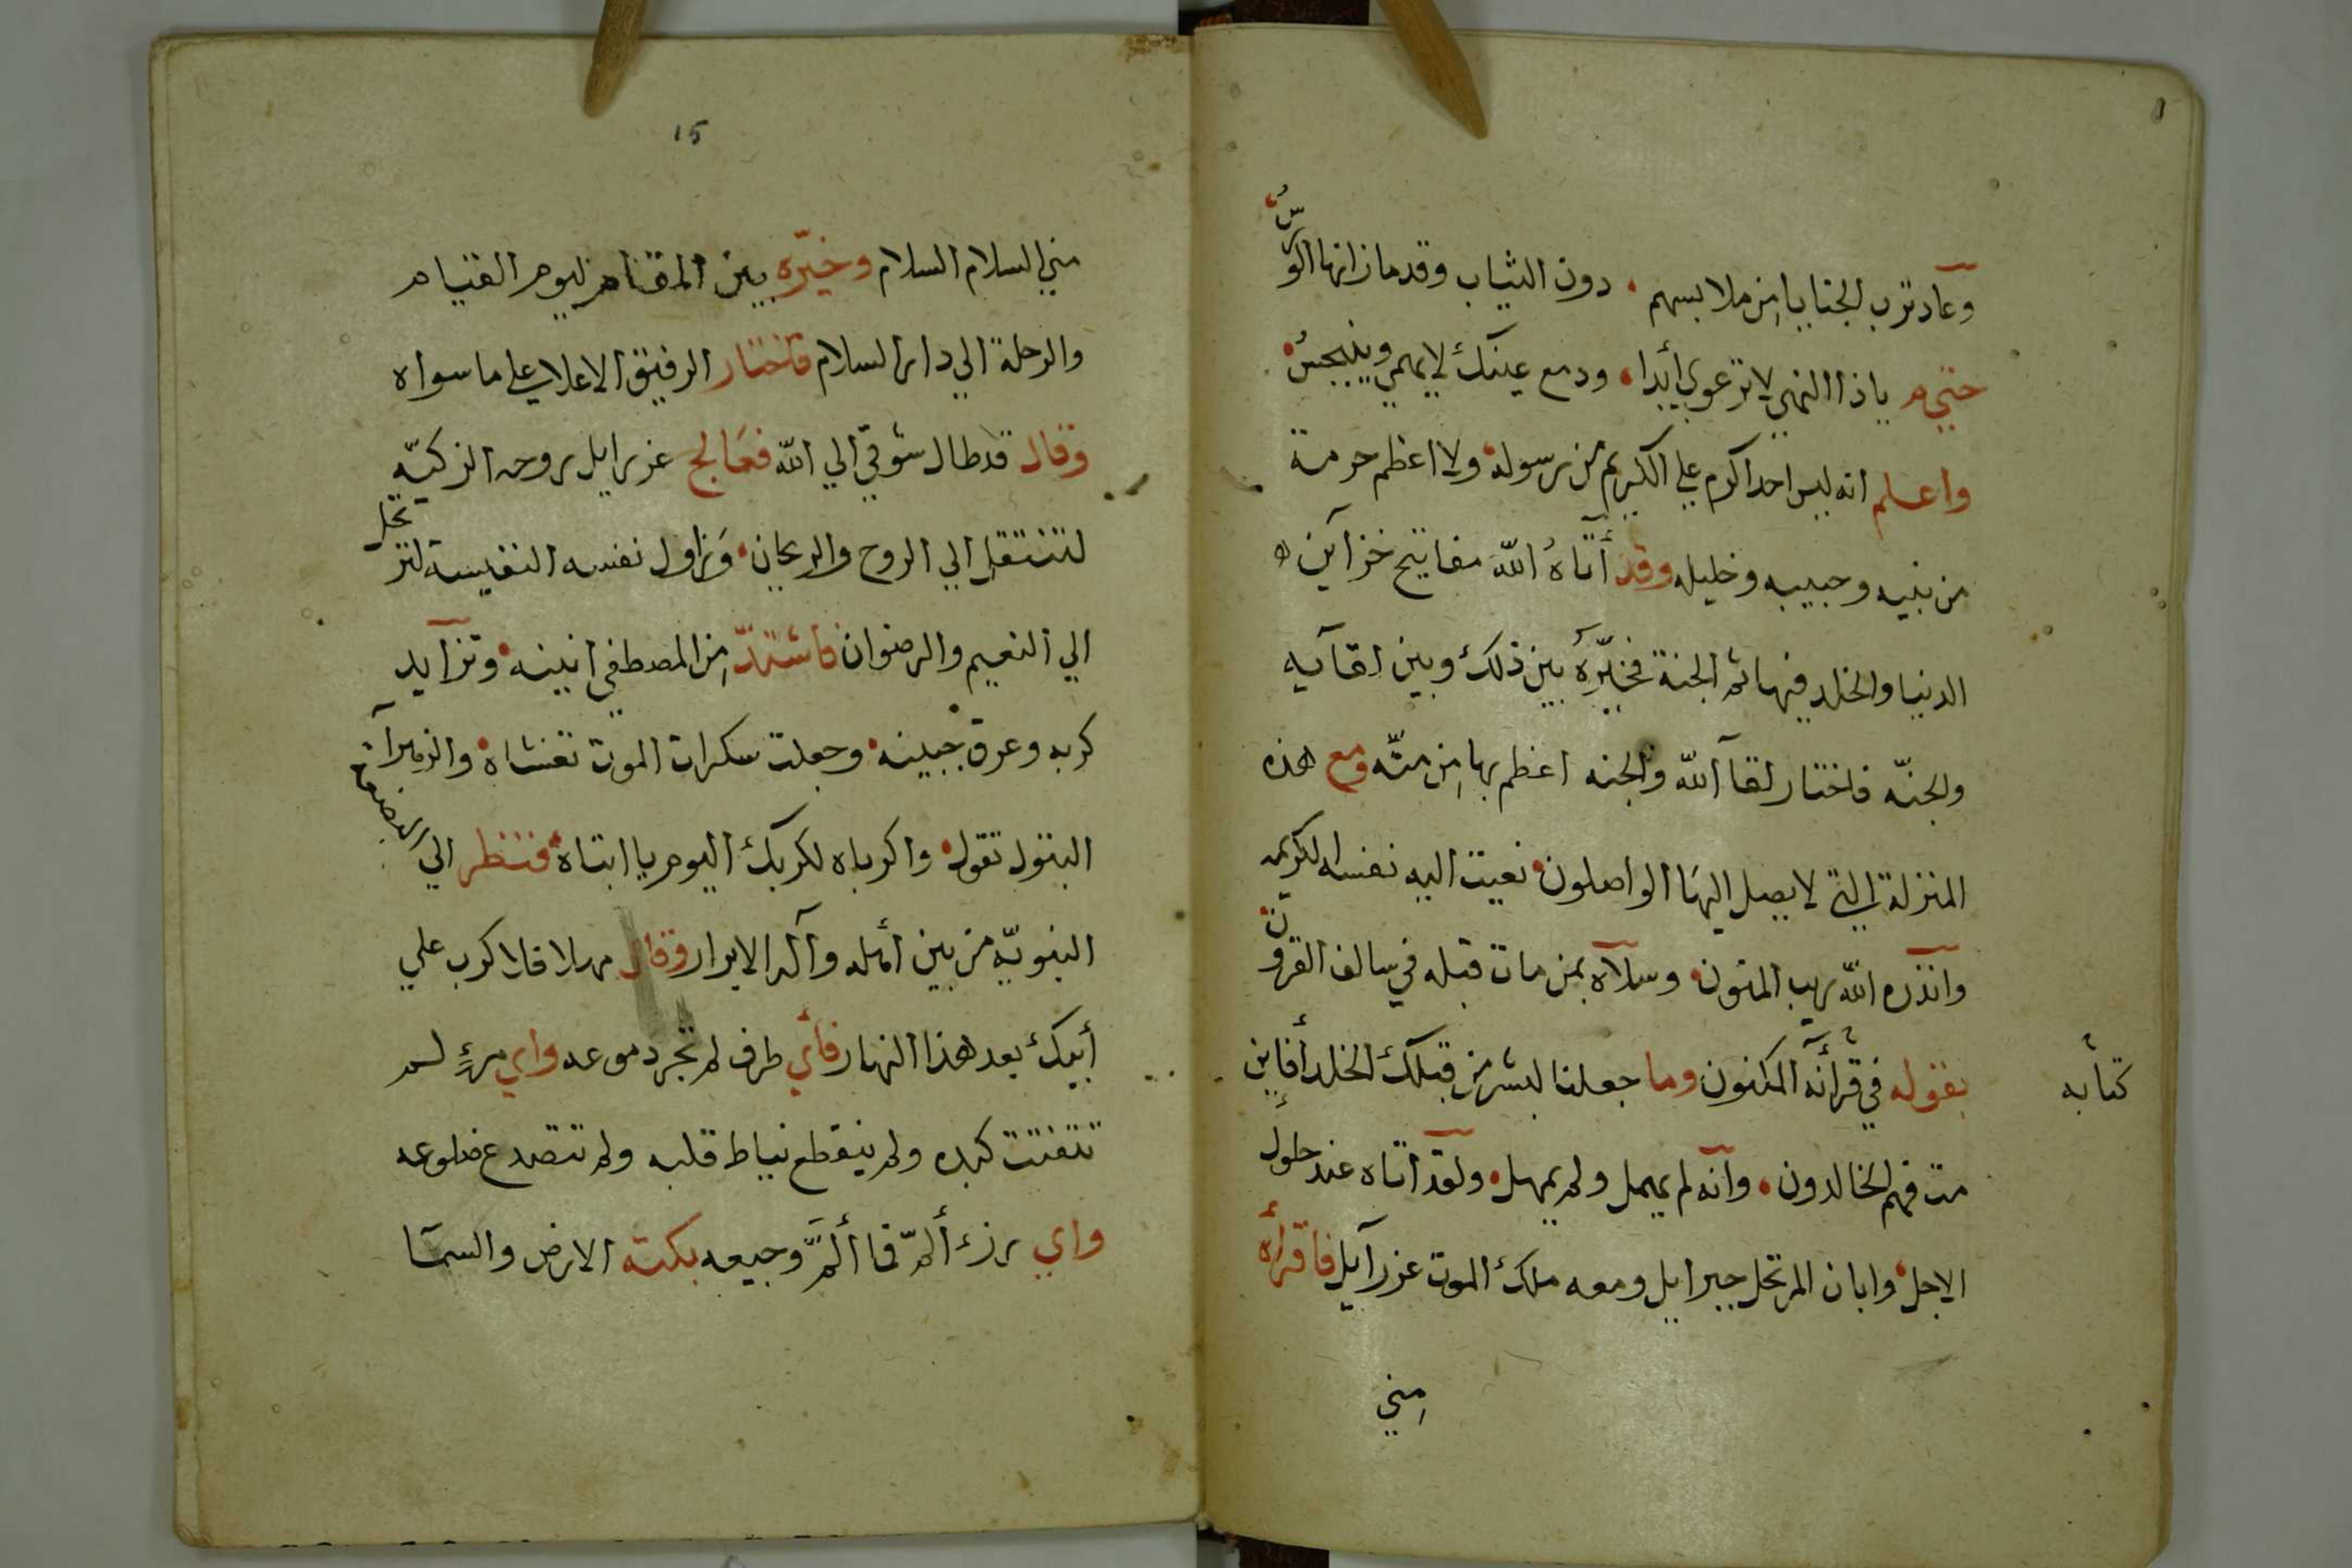 وعاد ترب الجنايا من ملابسهم دون الثياب وقدما زانها الورسُ
حتي م ياذا النهي لا ترعوي أبدا ودمع عينك لا يهمي وينبجسُ
واعلم انه ليس احد اكرم علي الكريم من رسوله ولا اعظم حرمة
من نبيه وحبيبه وخليله وقد أتاهُ الله مفاتيح خزآين
الدنيا والخلد فيها ثم الجنة فخيّره بين ذلك وبين لقآيه
والجنّه فاختار لقآ الله والجنه اعظم بها من منّه ومع هذه
المنزلة التي لا يصل اليها الواصلون نعيت اليه نفسه الكريمه
وآنذره الله بريب المنون وسلآه بمن مات قبله في سالف القرون
بقوله في قرأنه المكنون وما جعلنا لبشر من قبلك الخلد أفاين
كتابه
مت فهم الخالدون وآنه لم يهمل ولم يمهل ولقد اتاه عند حلول
الاجل وابان المرتحل جبرايل ومعه ملك الموت عزرآيل فاقرأه
مني
15
مني السلام السلام وخيّره بين المقام ليوم القيام
والرحلة الي دار السلام فاختار الرفيق الاعلا علي ما سواه
وقال قد طال شوقي الي الله فعالج عزرايل روحه الزكيّه
لتنتقل الي الروح والريحان وزاول نفسه النفيسة لترتحل
الي النعيم والرضوان فاشتدّ من المصطفي انينه وتزآيد
كربه وعرق جبينه وجعلت سكرات الموت تغشاه والزهرآ
البتول تقول واكرباه لكربك اليوم يا ابتاه فنظر الي البضعة
النبويّه من بين أهله وآله الابرار وقال مهلا فلا كرب علي
أبيك بعد هذا النهار فأي طرف لم تجر دموعه واي مرءٍ لم
تتفتت كبده ولم ينقطع نياط قلبه ولم تتصدع ضلوعه
واي رزء ألمّ فما ألمَّ وجيعه بكته الارض والسمآ